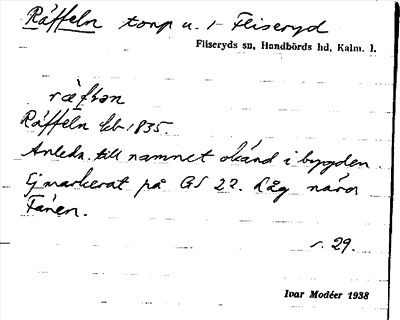 Räffeln torp u. 1 Fliseryd
Fliseryds sn, Handbörds hd, Kalm. l.
Räffeln kb 1835.
Anledn. till namnet okänd i bygden.
Ej markerat på GS 22. Låg nära
Fånen.
s. 29.
Ivar Modéer 1938